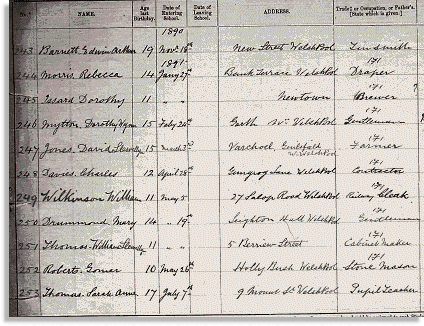 No. NAME. Age last Birthday. Date of Entering School. Date of Leaving School. ADDRESS. Trade, or Occupation, or Father's. [State which is given]
1890
243 Barnett Edwin Arthur 19 Novr 18th New Street Welshpool Tinsmith
1891 171
244 Morris Rebecca 14 Jany 27th Bank Terrace Welshpool Draper
171
245 Issard Dorothy 11 " " Newtown Brewer
171
246 Mytton Dorothy 15 Feby 24th Garth Nr Welshpool Gentleman
171
247 Jones David Llewelly 15 March 2nd Varchoel, Guilsfield Farmer
Nr Welshpool 171
248 Davies Charles 12 April 28th Gungrog Lane Welshpool Contractor
171
249 Wilkinson William 11 May 5 27 Salop Road Welshpool Railway Clerk
171
250 Drummond Mary 14 " 19th Leighton Hall Welshpool Gentleman
171
251 Thomas William Llewelly 11 " " 5 Berriew Street Cabinet Maker
171
252 Roberts Gomer 10 May 26th Holly Bush Welshpool Stone Mason
171
253 Thomas Sarah Anne 17 July 7th 9 Mount St Welshpool Pupil Teacher